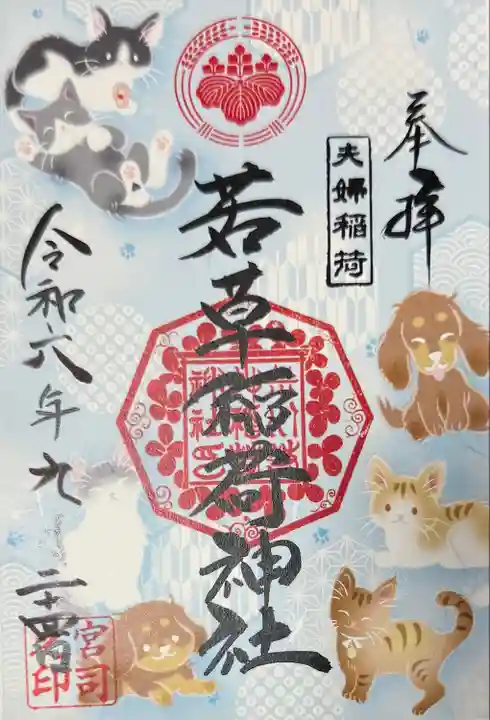 奉拝
夫婦稲荷
若草稲荷神社
令和六年九月二十四日
宮司之印